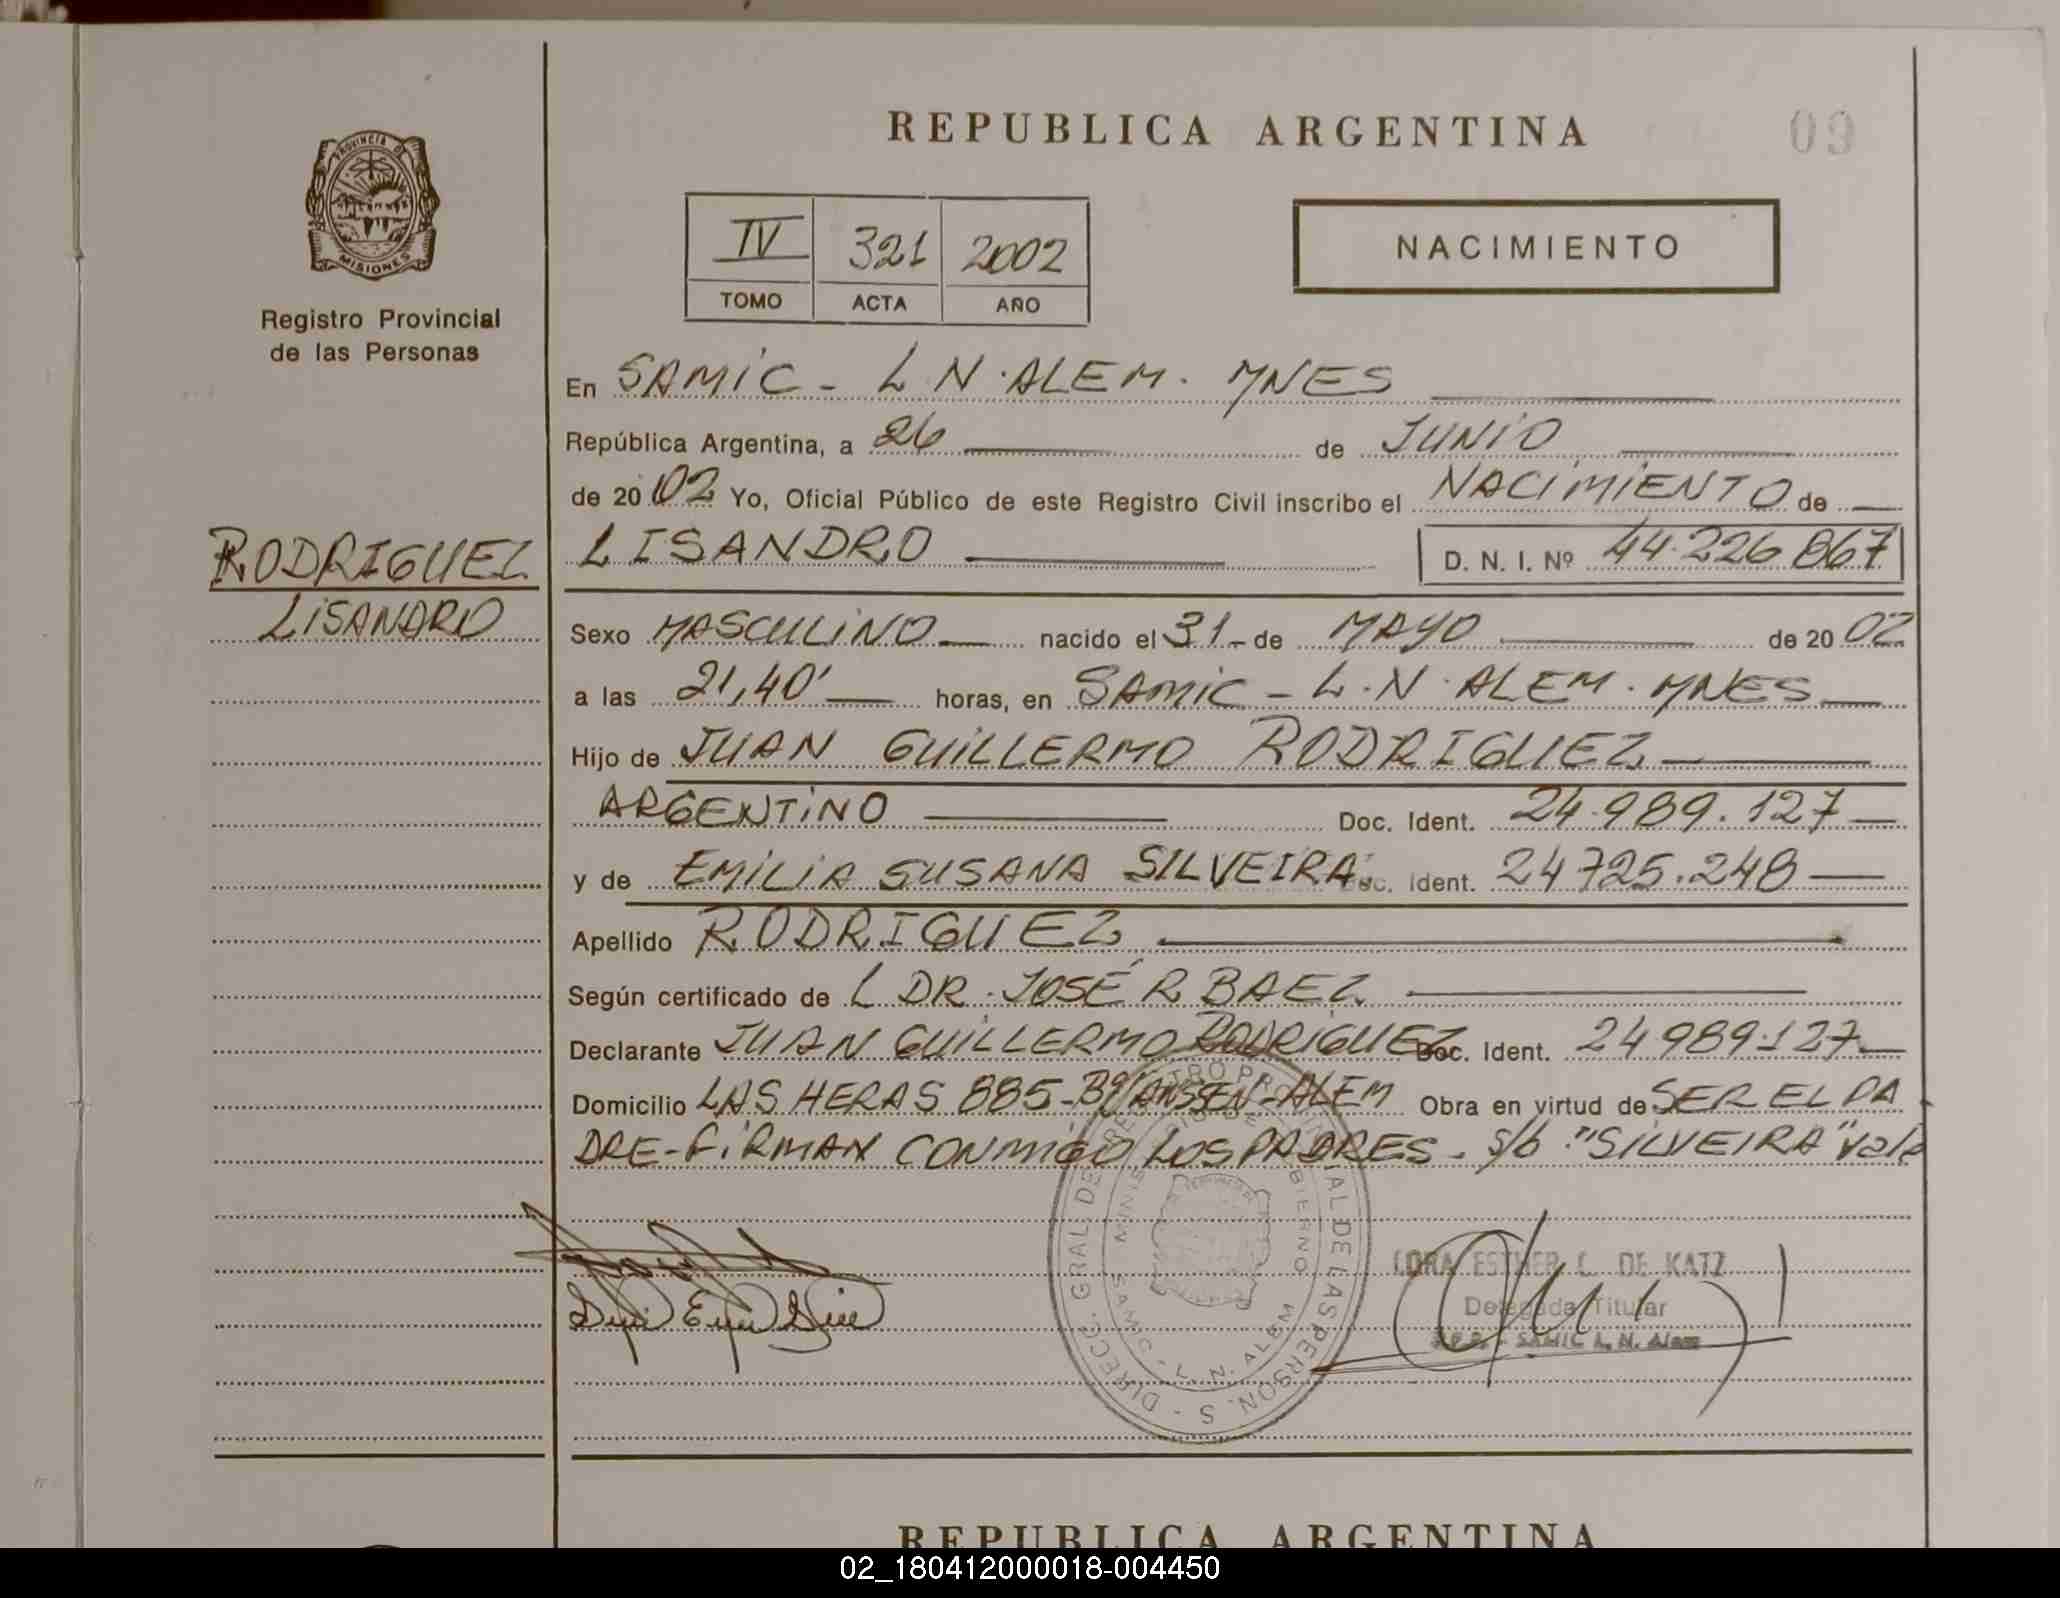 REPUBLICA ARGENTINA
09
PROVINCIA DE
MISIONES
Registro Provincial
de las Personas
IV 321 2002
TOMO ACTA AÑO
NACIMIENTO
En SAMIC - L.N. ALEM. MNES
República Argentina, a 26 de JUNIO
de 2002 Yo, Oficial Público de este Registro Civil inscribo el NACIMIENTO de
LISANDRO D. N. I. Nº 44.226 867
RODRIGUEZ
LISANDRO
Sexo MASCULINO nacido el 31 - de MAYO de 20 02
a las 21,40' horas, en SAMIC - L.N. ALEM. MNES
Hijo de JUAN GUILLERMO RODRIGUEZ
ARGENTINO Doc. Ident. 24.989.127
y de EMILIA SUSANA SILVEIRA. Doc. Ident. 24725.248
Apellido RODRIGUEZ
Según certificado de L DR. JOSÉ R BAEZ
Declarante JUAN GUILLERMO RODRIGUEZ Doc. Ident. 24 989.127
Domicilio LAS HERAS 885 - Bº JANSEN - ALEM Obra en virtud de SER EL PA
DRE - FIRMAN CONMIGO LOS PADRES - s/b "SILVEIRA" vale
DIRECC. GRAL. DE REGISTRO PROVINCIAL DE LAS PERSON. S
SAMIC - L. N. ALEM
ESTHER C. DE KATZ
Delegada Titular
SAMIC L. N. Alem
REPUBLICA ARGENTINA
02_180412000018-004450